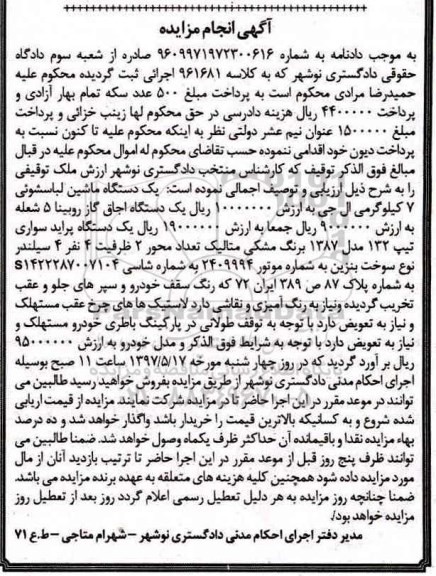 آگهی انجام مزایده
به موجب دادنامه به شماره ۹۶۰۹۹۷۱۹۷۲۳۰۰۶۱۶ صادره از شعبه سوم دادگاه
حقوقی دادگستری نوشهر که به کلاسه ۹۶۱۶۸۱ اجرائی ثبت گردیده محکوم علیه
حمیدرضا مرادی محکوم است به پرداخت مبلغ ۵۰۰ عدد سکه تمام بهار آزادی و
پرداخت ۴۴۰۰۰۰۰ ریال هزینه دادرسی در حق محکوم لها زینب خزائی و پرداخت
مبلغ ۱۵۰۰۰۰۰ عنوان نیم عشر دولتی نظر به اینکه محکوم علیه تا کنون نسبت به
پرداخت دیون خود اقدامی ننموده حسب تقاضای محکوم له اموال محکوم علیه در قبال
مبالغ فوق الذکر توقیف که کارشناس منتخب دادگستری نوشهر ارزش ملک توقیفی
را به شرح ذیل ارزیابی و توصیف اجمالی نموده است: یک دستگاه ماشین لباسشوئی
۷ کیلوگرمی ال جی به ارزش ۱۰۰۰۰۰۰۰ ریال یک دستگاه اجاق گاز روبینا ۵ شعله
به ارزش ۹۰۰۰۰۰۰ ریال جمعا به ارزش ۱۹۰۰۰۰۰۰ ریال یک دستگاه پراید سواری
تیپ ۱۳۲ مدل ۱۳۸۷ برنگ مشکی متالیک تعداد محور ۲ ظرفیت ۴ نفر ۴ سیلندر
نوع سوخت بنزین به شماره موتور ۲۴۰۹۹۹۴ به شماره شاسی S۱۴۲۲۲۸۷۰۰۷۱۰۴
به شماره پلاک ۸۷ ص ۳۸۹ ایران ۷۲ که رنگ سقف خودرو و سپر های جلو و عقب
تخریب گردیده ونیاز به رنگ آمیزی و نقاشی دارد لاستیک ها های چرخ عقب مستهلک
و نیاز به تعویض دارد با توجه به توقف طولانی در پارکینگ باطری خودرو مستهلک و
نیاز به تعویض دارد با توجه به شرایط فوق الذکر و مدل خودرو به ارزش ۹۵۰۰۰۰۰۰
ریال بر آورد گردید که در روز چهار شنبه مورخه ۱۳۹۷/۵/۱۷ ساعت ۱۱ صبح بوسیله
اجرای احکام مدنی دادگستری نوشهر از طریق مزایده بفروش خواهید رسید طالبین می
توانند در موعد مقرر در این اجرا حاضر تا در مزایده شرکت نمایند. مزایده از قیمت ارزیابی
شده شروع و به کسانیکه بالاترین قیمت را خریدار باشد واگذار خواهد شد و ده درصد
بهاء مزایده نقدا و باقیمانده آن حداکثر ظرف یکماه وصول خواهد شد. ضمنا طالبین می
توانند ظرف پنج روز قبل از موعد مقرر در این اجرا حاضر تا ترتیب بازدید آنان از مال
مورد مزایده داده شود همچنین کلیه هزینه های متعلقه به عهده برنده مزایده می باشد.
ضمنا چنانچه روز مزایده به هر دلیل تعطیل رسمی اعلام گردد روز بعد از تعطیل روز
مزایده خواهد بود/.
مدیر دفتر اجرای احکام مدنی دادگستری نوشهر –شهرام متاجی –ط.ع ۷۱